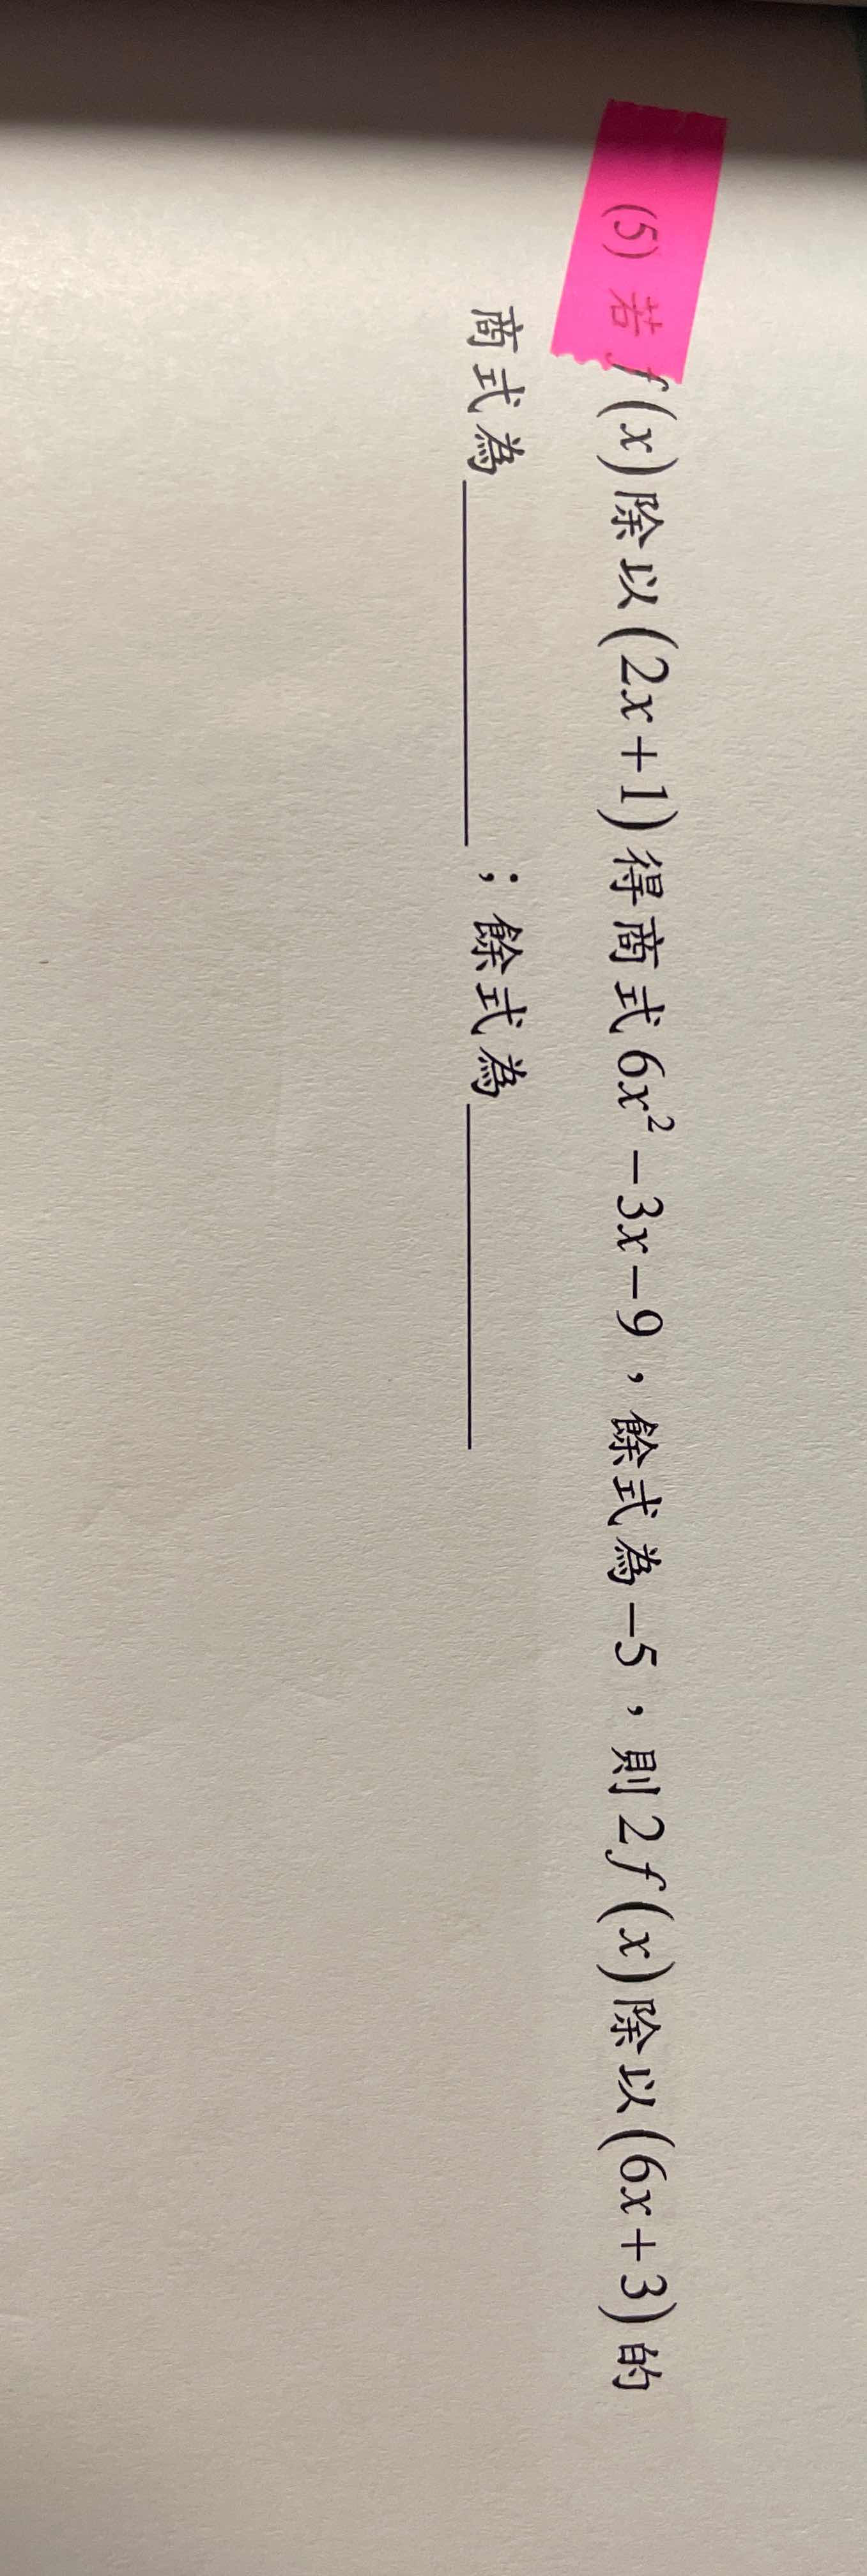 (5) 若 f(x) 除以 (2x+1) 得商式 6x²−3x−9,餘式為 −5,則 2f(x) 除以 (6x+3) 的
商式為__________;餘式為__________